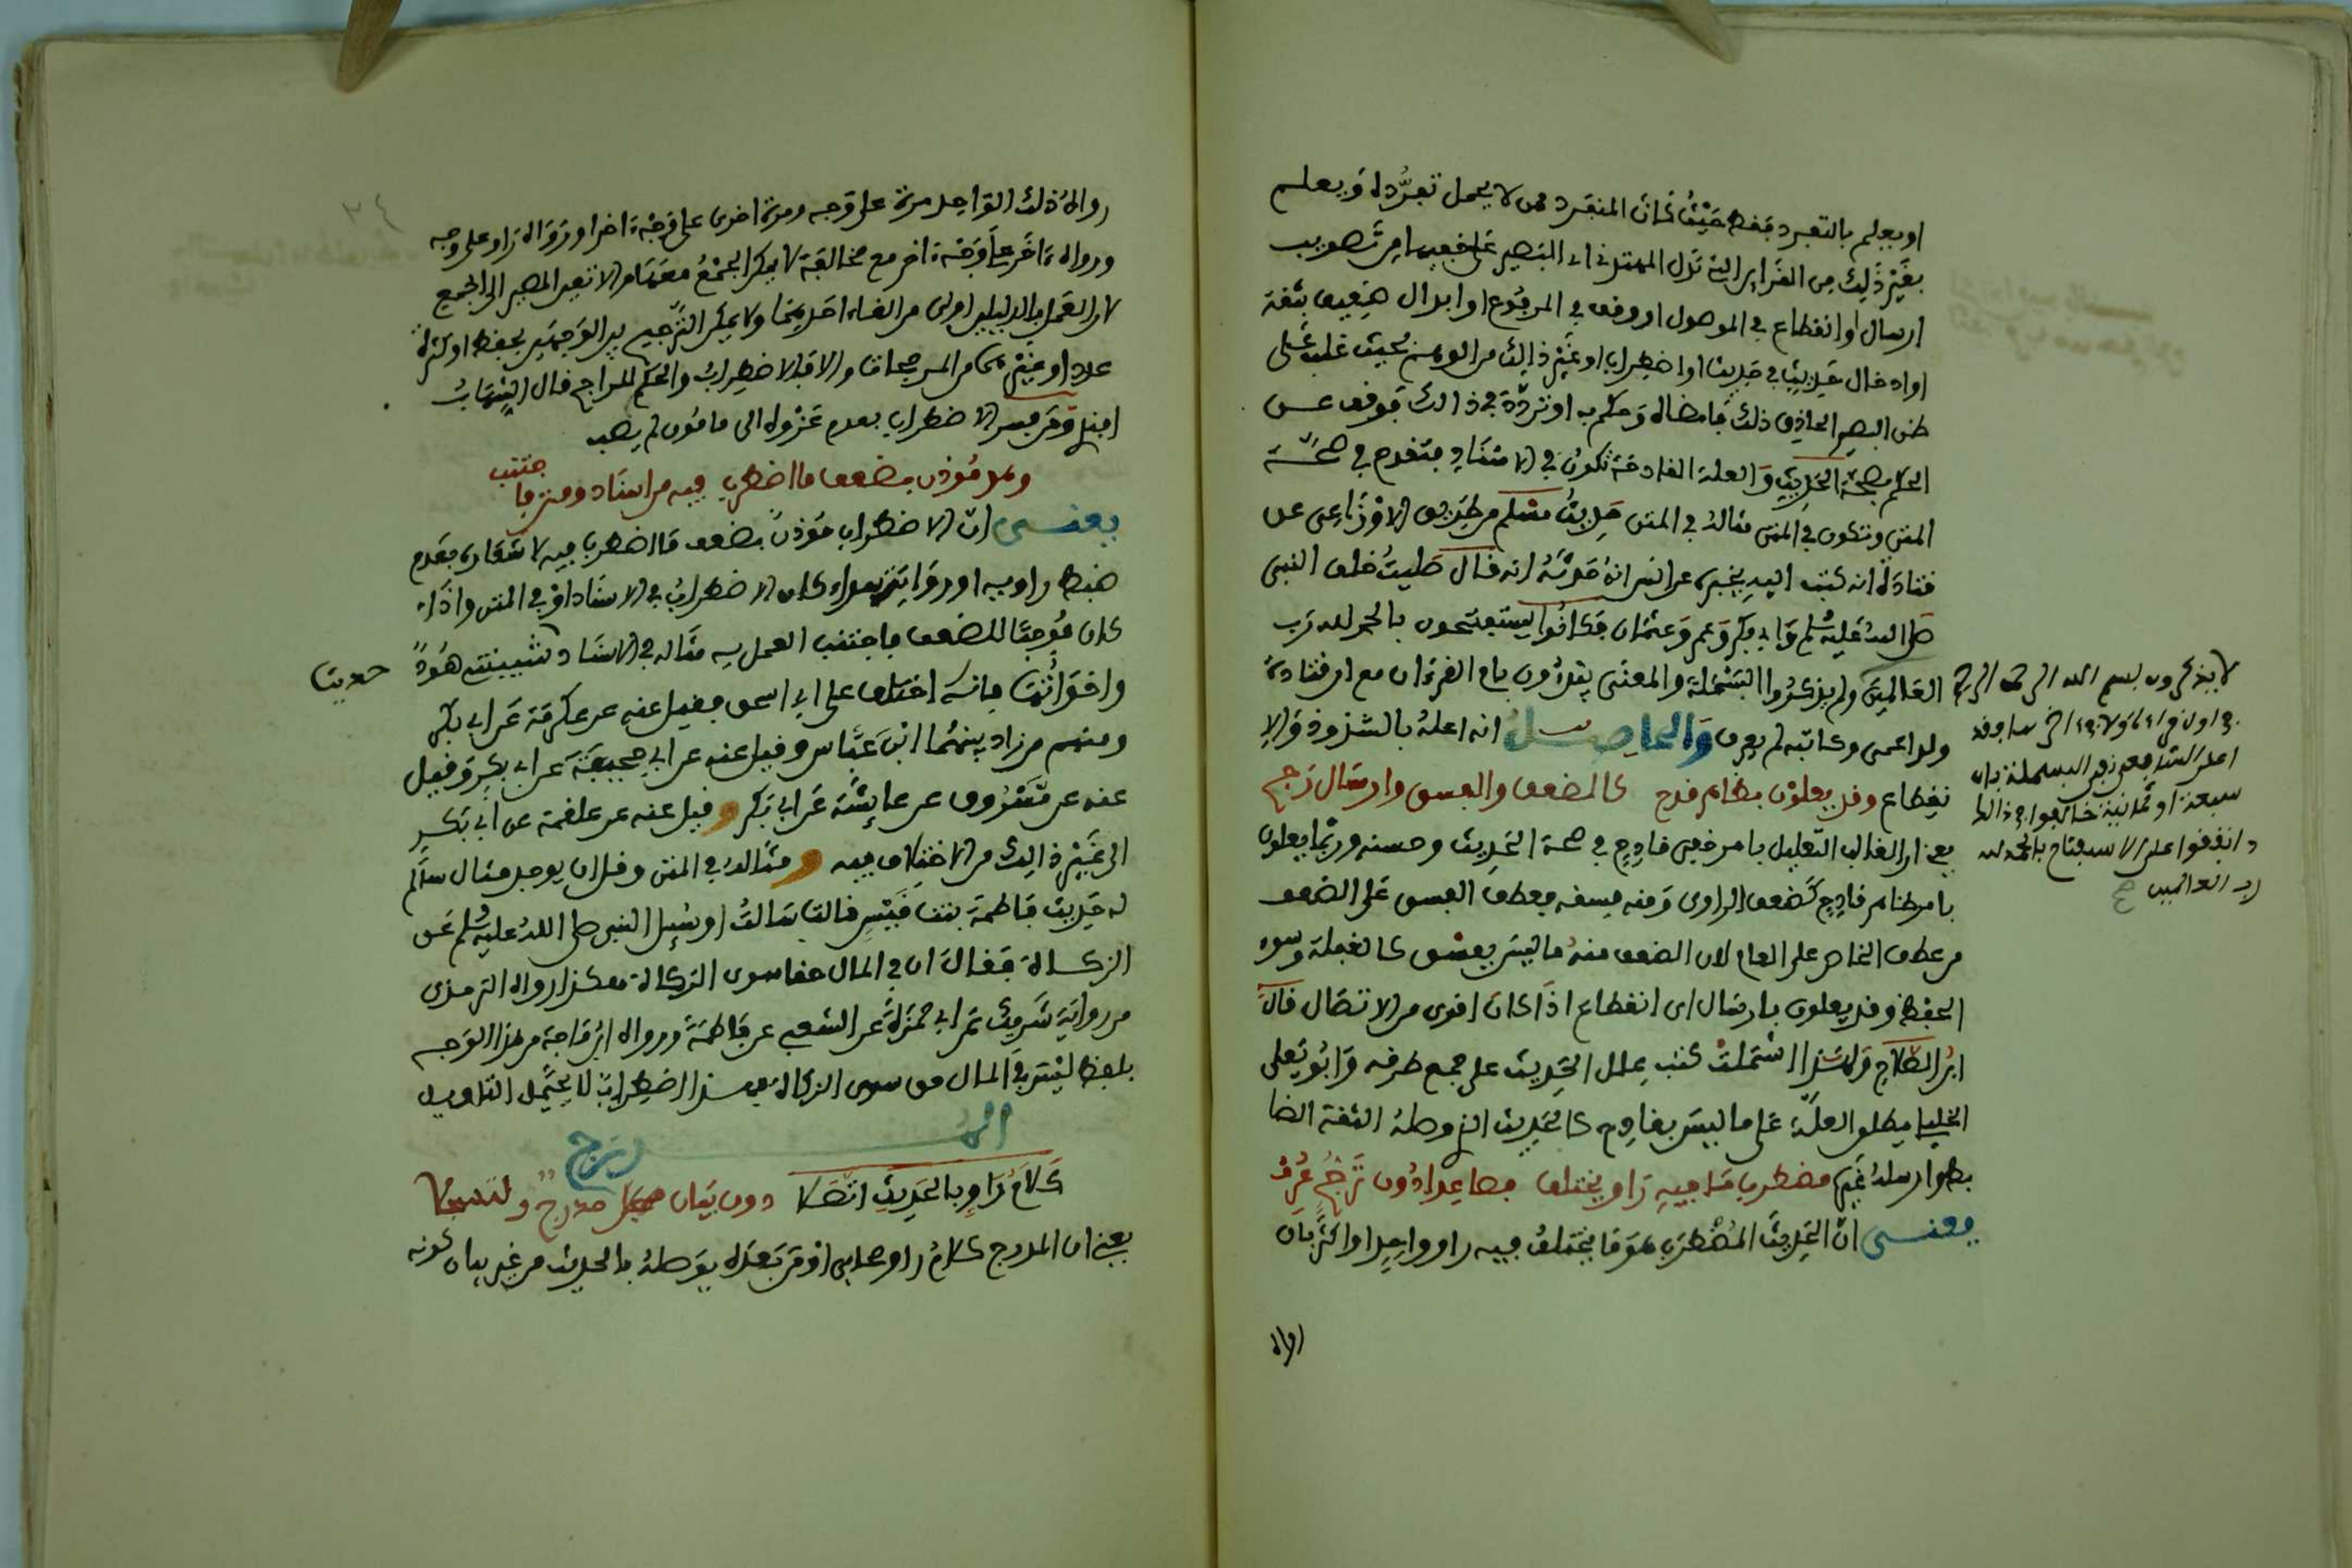 او يعلم بالتفرد فقط حيث كان المنفرد ممن لا يحمل تفرده او يعلم
بغير ذلك من القراين التي تدل المهتدي اي البصير على خفيها من تصويب
ارسال او انقطاع في الموصول او وقف في المرفوع او ابدال ضعيف بثقة
او ادخال حديث في حديث او اضطراب او غير ذلك من الوهم بحيث غلب على
ظن البصير الحاذق ذلك فامضاه وحكم به او تردد في ذالك فوقف عن
الحكم بصحة الحديث والعلة القادحة تكون في الاسناد فتقدح في صحة
المتن وتكون في المتن مثاله في المتن حديث مسلم من طريق الاوزاعي عن
قتادة انه كتب اليه يخبره عن انس انه حدثه انه قال صليت خلف النبي
صلى الله عليه وسلم وابي بكر وعمر وعثمان فكانوا يستفتحون بالحمد لله رب
العالمين ولم يذكروا البسملة والمعنى يقرءون بام القرءان مع ان قتادة
ولد اعمى وكاتبه لم يعرف والحاصل انه اعله بالشذوذ والا
نقطاع وقد يعلون بظاهر قدح كالضعف والفسق وارسال رجح
يعني ان الغالب التعليل بامر خفي قادح في صحة الحديث وحسنه وربما يعلون
بامر ظاهر قادح كضعف الراوي وفيه فسقه فعطف الفسق على الضعف
من عطف الخاص على العام لان الضعف منه ما ليس بفسق كالغفلة وسوء
الحفظ وقد يعلون بارسال اي انقطاع اذا كان اقوى من الاتصال قال
ابن الصلاح ولهذا اشتملت كتب علل الحديث على جمع طرقه وابو يعلى
الخليلي يطلق العلة على ما ليس بقادح كالحديث الذي وصله الثقة الضا
بط وارسله غيره مضطرب ما فيه راو يختلف فصاعدا دون ترجح عرف
يعني ان الحديث المضطرب هو ما يختلف فيه راو واحد او اكثر بان
رواه
لا يذكرون بسم الله الرحمن الرحيم
في اول قراءة ولا في اخرها وقد
اعل الشافعي نفي البسملة بان
سبعة او ثمانية خالفوا في ذالك
واتفقوا على الاستفتاح بالحمد لله
رب العالمين
رواه ذلك الواحد مرة على وجه ومرة اخرى على وجه اخر او رواه راو على وجه
ورواه اخر على وجه اخر مع مخالفة لا يمكن الجمع معها والا تعين المصير الى الجمع
لان العمل بالدليلين اولى من الغاء احديهما ولا يمكن الترجيح بين الوجهين بحفظ او كثرة
عدد او غيرهما من المرجحات والا فلا اضطراب والحكم للراجح قال الشهاب
ابنل ومن فسر الاضطراب بعدم عزوه الى مامون لم يصب
وهو موذن بضعف ما اضطرب فيه من اسناد ومتن فاجتنب
يعني ان الاضطراب موذن بضعف ما اضطرب فيه لاشعاره بعدم
ضبط راويه او رواته سواء كان الاضطراب في الاسناد او في المتن واذا
كان موجبا للضعف فاجتنب العمل به مثاله في الاسناد حديث شيبتني هود
واخواتها فانه اختلف على ابي اسحق فقيل عنه عن عكرمة عن ابي بكر
ومنهم من زاد بينهما ابن عباس وقيل عنه عن ابي جحيفة عن ابي بكر وقيل
عنه عن مسروق عن عايشة عن ابي بكر وقيل عنه عن علقمة عن ابي بكر
الى غير ذالك من الاختلاف فيه ومثاله في المتن وقل ان يوجد مثال سالم
له حديث فاطمة بنت قيس قالت سالت او سيل النبي صلى الله عليه وسلم عن
الزكاة فقال ان في المال حقا سوى الزكاة هكذا رواه الترمذي
من رواية شريك عن ابي حمزة عن الشعبي عن فاطمة ورواه ابن ماجة من هذا الوجه
بلفظ ليس في المال حق سوى الزكاة فهذا اضطراب لا يحتمل التاويل
المدرج
كلام راو بالحديث اتصلا دون بيان مدرج
يعني ان المدرج كلام راو صحابي او من بعده يوصله بالحديث من غير بيان كونه